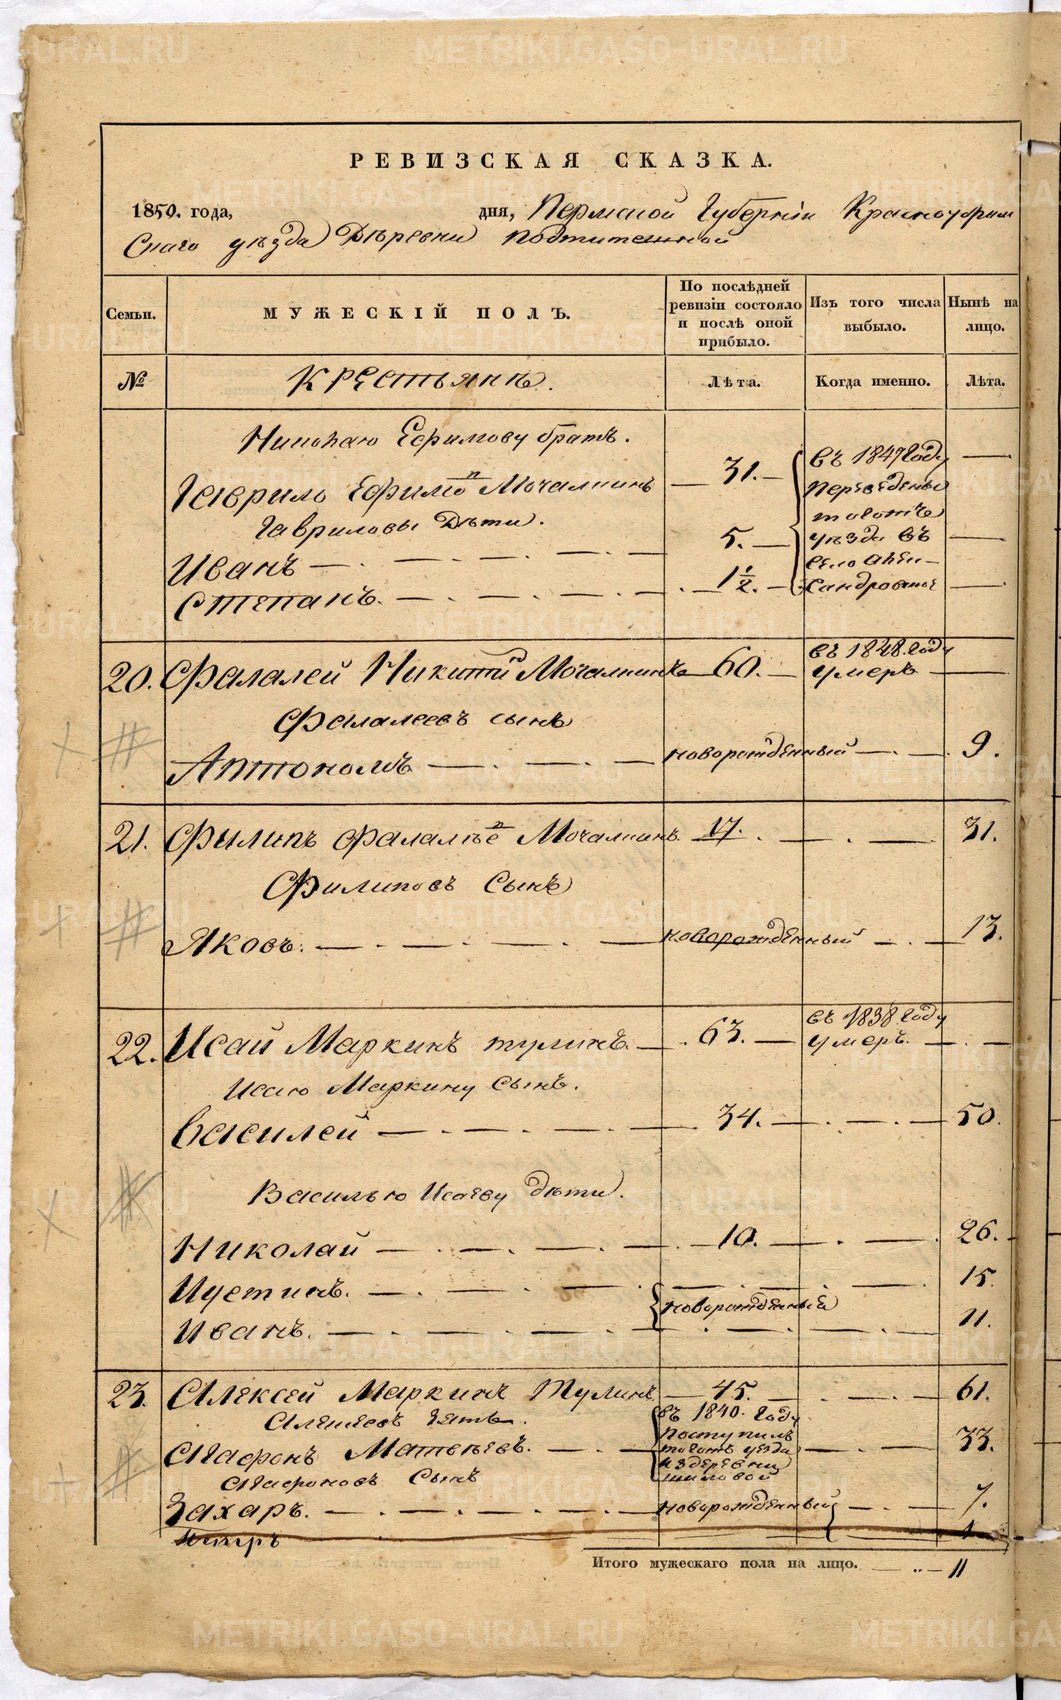 РЕВИЗСКАЯ СКАЗКА.
1850. года, дня, Пермской Губернiи Красноуфим
скаго уѣзда Деревни
Семьи. МУЖЕСКIЙ ПОЛЪ. По послѣдней ревизiи состояло и послѣ оной прибыло. Изъ того числа выбыло. Нынѣ на лицо.
№ Крестьяне. Лѣта. Когда именно. Лѣта.
Ефимову братъ.
Гаврило Ефимо Мочалкинъ 31. въ 1847 Году
Переведены
Гавриловы Дѣти. тогожъ
Иванъ 5. уѣзда въ
село Алек-
Степанъ. 1 1/2. сандровское
20. Фалалей Никити Мочалкинъ 60. въ 1848. Году умеръ
Фалалеевъ сынъ
Антономъ новорожденный 9.
21. Филипъ Фалалѣе Мочалкинъ 17. 31.
Филиповъ Сынъ
Яковъ. новорожденный 13.
22. Исай Маркинъ тулинъ. 63. въ 1838 Году умеръ.
Исаю Маркину Сынъ.
Василей 34. 50.
Василью Исаеву дѣти.
Николай 10. 26.
Иустинъ. 15.
новорожденный
Иванъ. 11.
23. Алексей Маркинъ Тулинъ 45. 61.
Алексеевъ зять. въ 1840. Году
Поступилъ
Агафонъ Матвѣевъ. тогожъ уезда 33.
из деревни
Агафоновъ Сынъ шиловой
Захаръ. новорожденный 7.
Петръ 1
Итого мужескаго пола на лицо. 11
METRIKI.GASO-URAL.RU